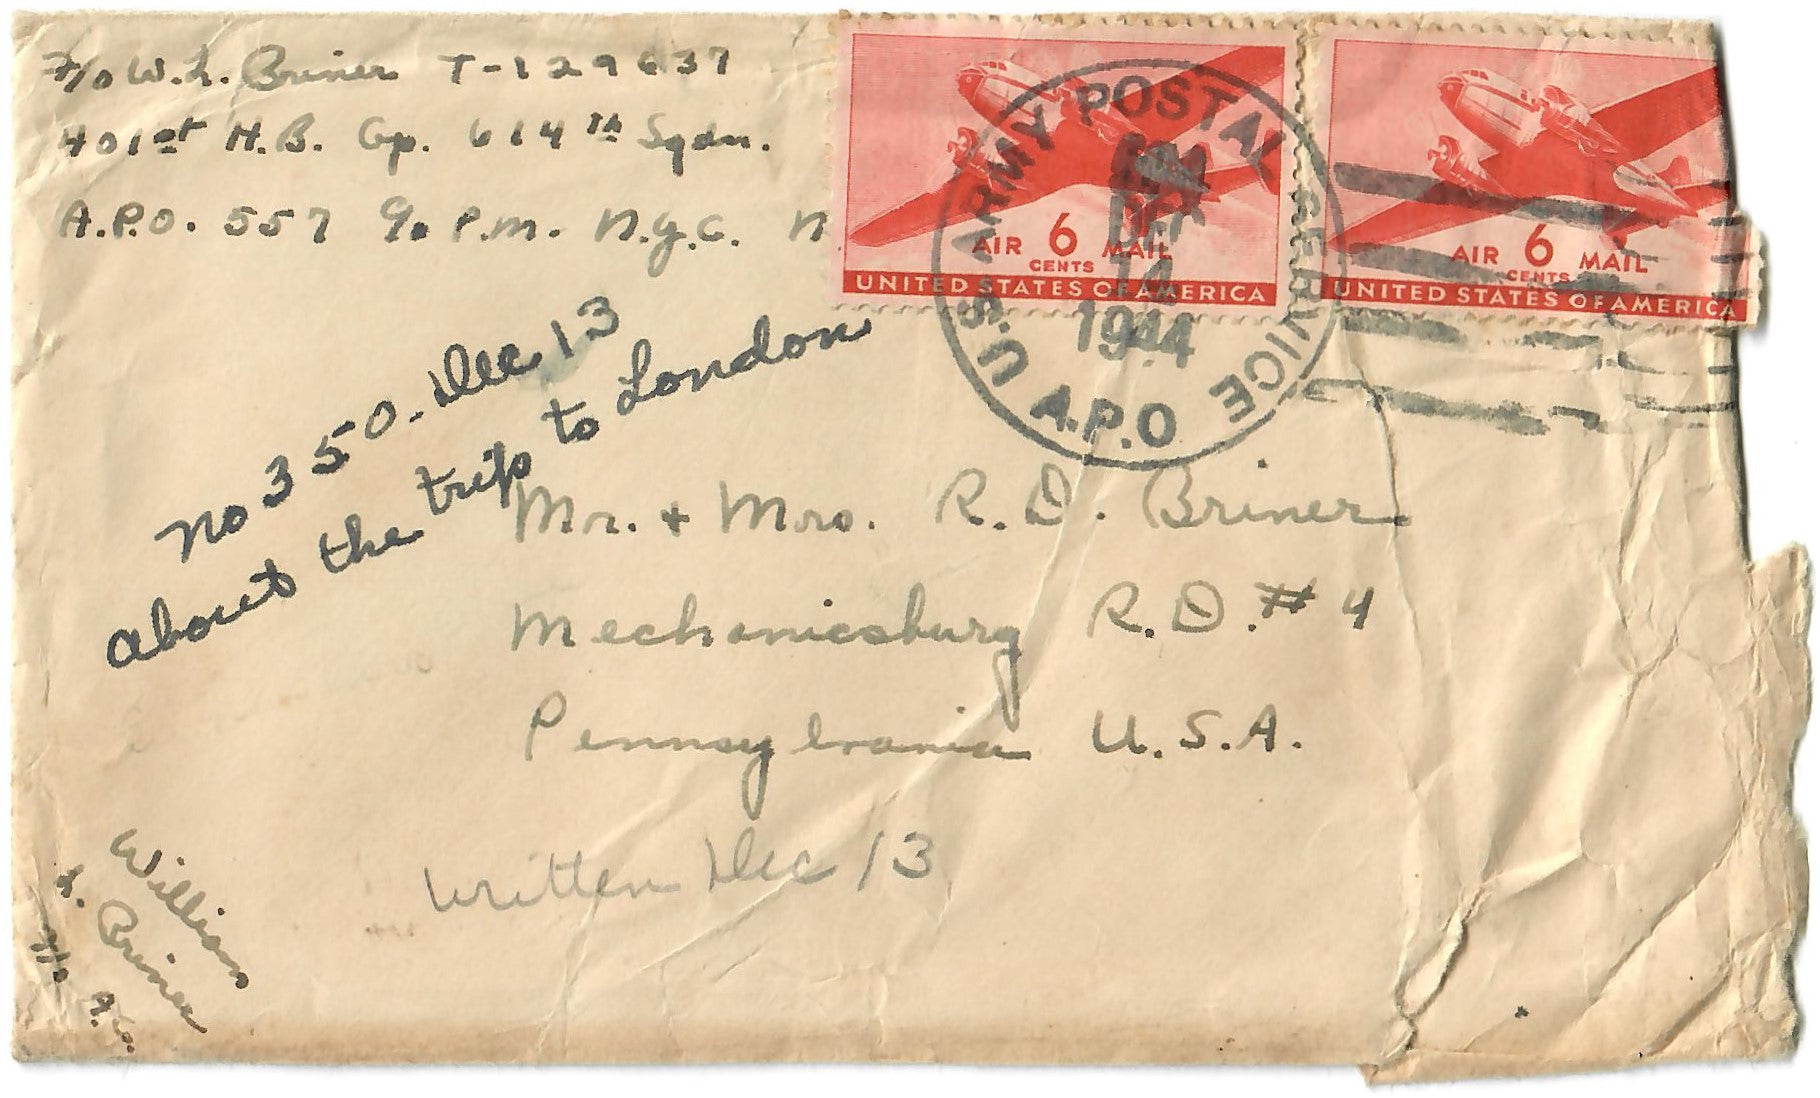 F/O W. L. Briner T-129637
401st H.B. Gp. 614th Sqdn.
A.P.O. 557 c/o P.M. N.Y.C. N
AIR 6 MAIL
CENTS
UNITED STATES OF AMERICA
AIR 6 MAIL
CENTS
UNITED STATES OF AMERICA
U.S. ARMY POSTAL SERVICE
DEC
14
1944
A.P.O
No 350 - Dec 13
about the trip to London
Mr. + Mrs. R. D. Briner
Mechanicsburg R.D. #4
Pennsylvania U.S.A.
Written Dec 13
William
L. Briner
F/O A.C.